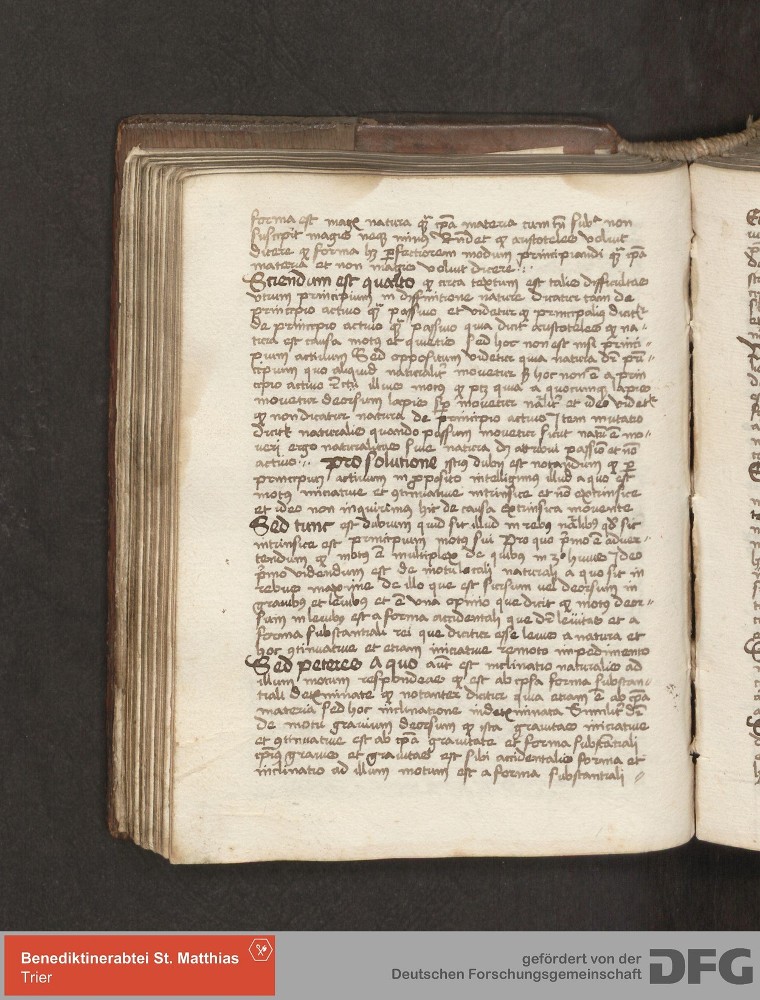 forma est mag͛ natura qͣ ip̄a materia cum tn̄ subᵃ non
suscipit magis neqꝫ minus Rn̄det͛ qꝫ aristoteles voluit
dicere qꝫ forma hꝫ ꝑfectiorem modum principiandi qͣ ip̄a
materia et non magis voluit dicere
Sciendum est quarto qꝫ circa textum est talis difficultas
vtrum principium in diffinitione nature dicatur tam de
principio actiuo qͣ passiuo et videtur qꝫ principaliꝰ dicit͛
de principio actiuo qͣ passiuo quia dicit aristoteles qꝫ na-
tura est causa motus et quietis sed hoc non est nisi princi-
pium actiuum Sed oppositum videtur quia natura dr̄ prī-
cipium quo aliquid naturalit͛ movetur sꝫ hoc non ē a prin
cipio actiuo illius motus qꝫ ptꝫ quia a quocunqꝫ lapis
movetur deorsum lapis sp̄ movetur nālit͛ et ideo videt͛
qꝫ non dicatur natura de principio actiuo Item mutatio
dicit͛ naturalis quando passum movetur sicut natū ē mo-
veri ergo naturalitas siue natura dꝫ attribui passiuo et nō
actiuo Pro solutione istiꝰ dubij est notandum qꝫ ꝑ
principium actiuum in ꝓposito intelligimus illud a quo est
motꝰ iniciatiue et ꝯtinuatiue intrinsice et nō extrinsice
et ideo non inquirimꝰ hic de causa extrinsica movente
Sed tunc est dubium quid sit illud in rebꝰ nālibꝰ qd̄ sit
intrinsice est principium motꝰ sui Pro quo pͥmo ē adver-
tendum qꝫ motꝰ ē multiplex de quibꝰ in 3º huius Ideo
pͥmo videndum est de motu locali naturali a quo sit in
rebus maxime de illo que est sursum vel deorsum in
grauibꝰ et leuibꝰ et ē vna opinio que dicit qꝫ motꝰ deor-
sum in leuibꝰ est a forma accidentali que dr̄ leuitas et a
forma substantiali rei que dicitur esse leuis a natura et
hoc ꝯtinuatiue et etiam iniciatiue remoto impedimento
Sed peteres a quo aūt est inclinatio naturalis ad
illum motum respondeas qꝫ est ab ip̄sa forma substan-
tiali det͛minate qꝫ notanter dicitur quia etiam ē ab ip̄a
materia sed hoc inclinatione indet͛minata Similit͛ dr̄
de motu grauium deorsum qꝫ ista grauitas iniciatiue
et ꝯtinuatiue est ab ip̄a grauitate et forma substātiali
ip̄iꝰ grauis et grauitas est sibi accidentalis forma et
inclinatio ad illum motum est a forma substantiali
Benediktinerabtei St. Matthias
Trier
gefördert von der
Deutschen Forschungsgemeinschaft
DFG